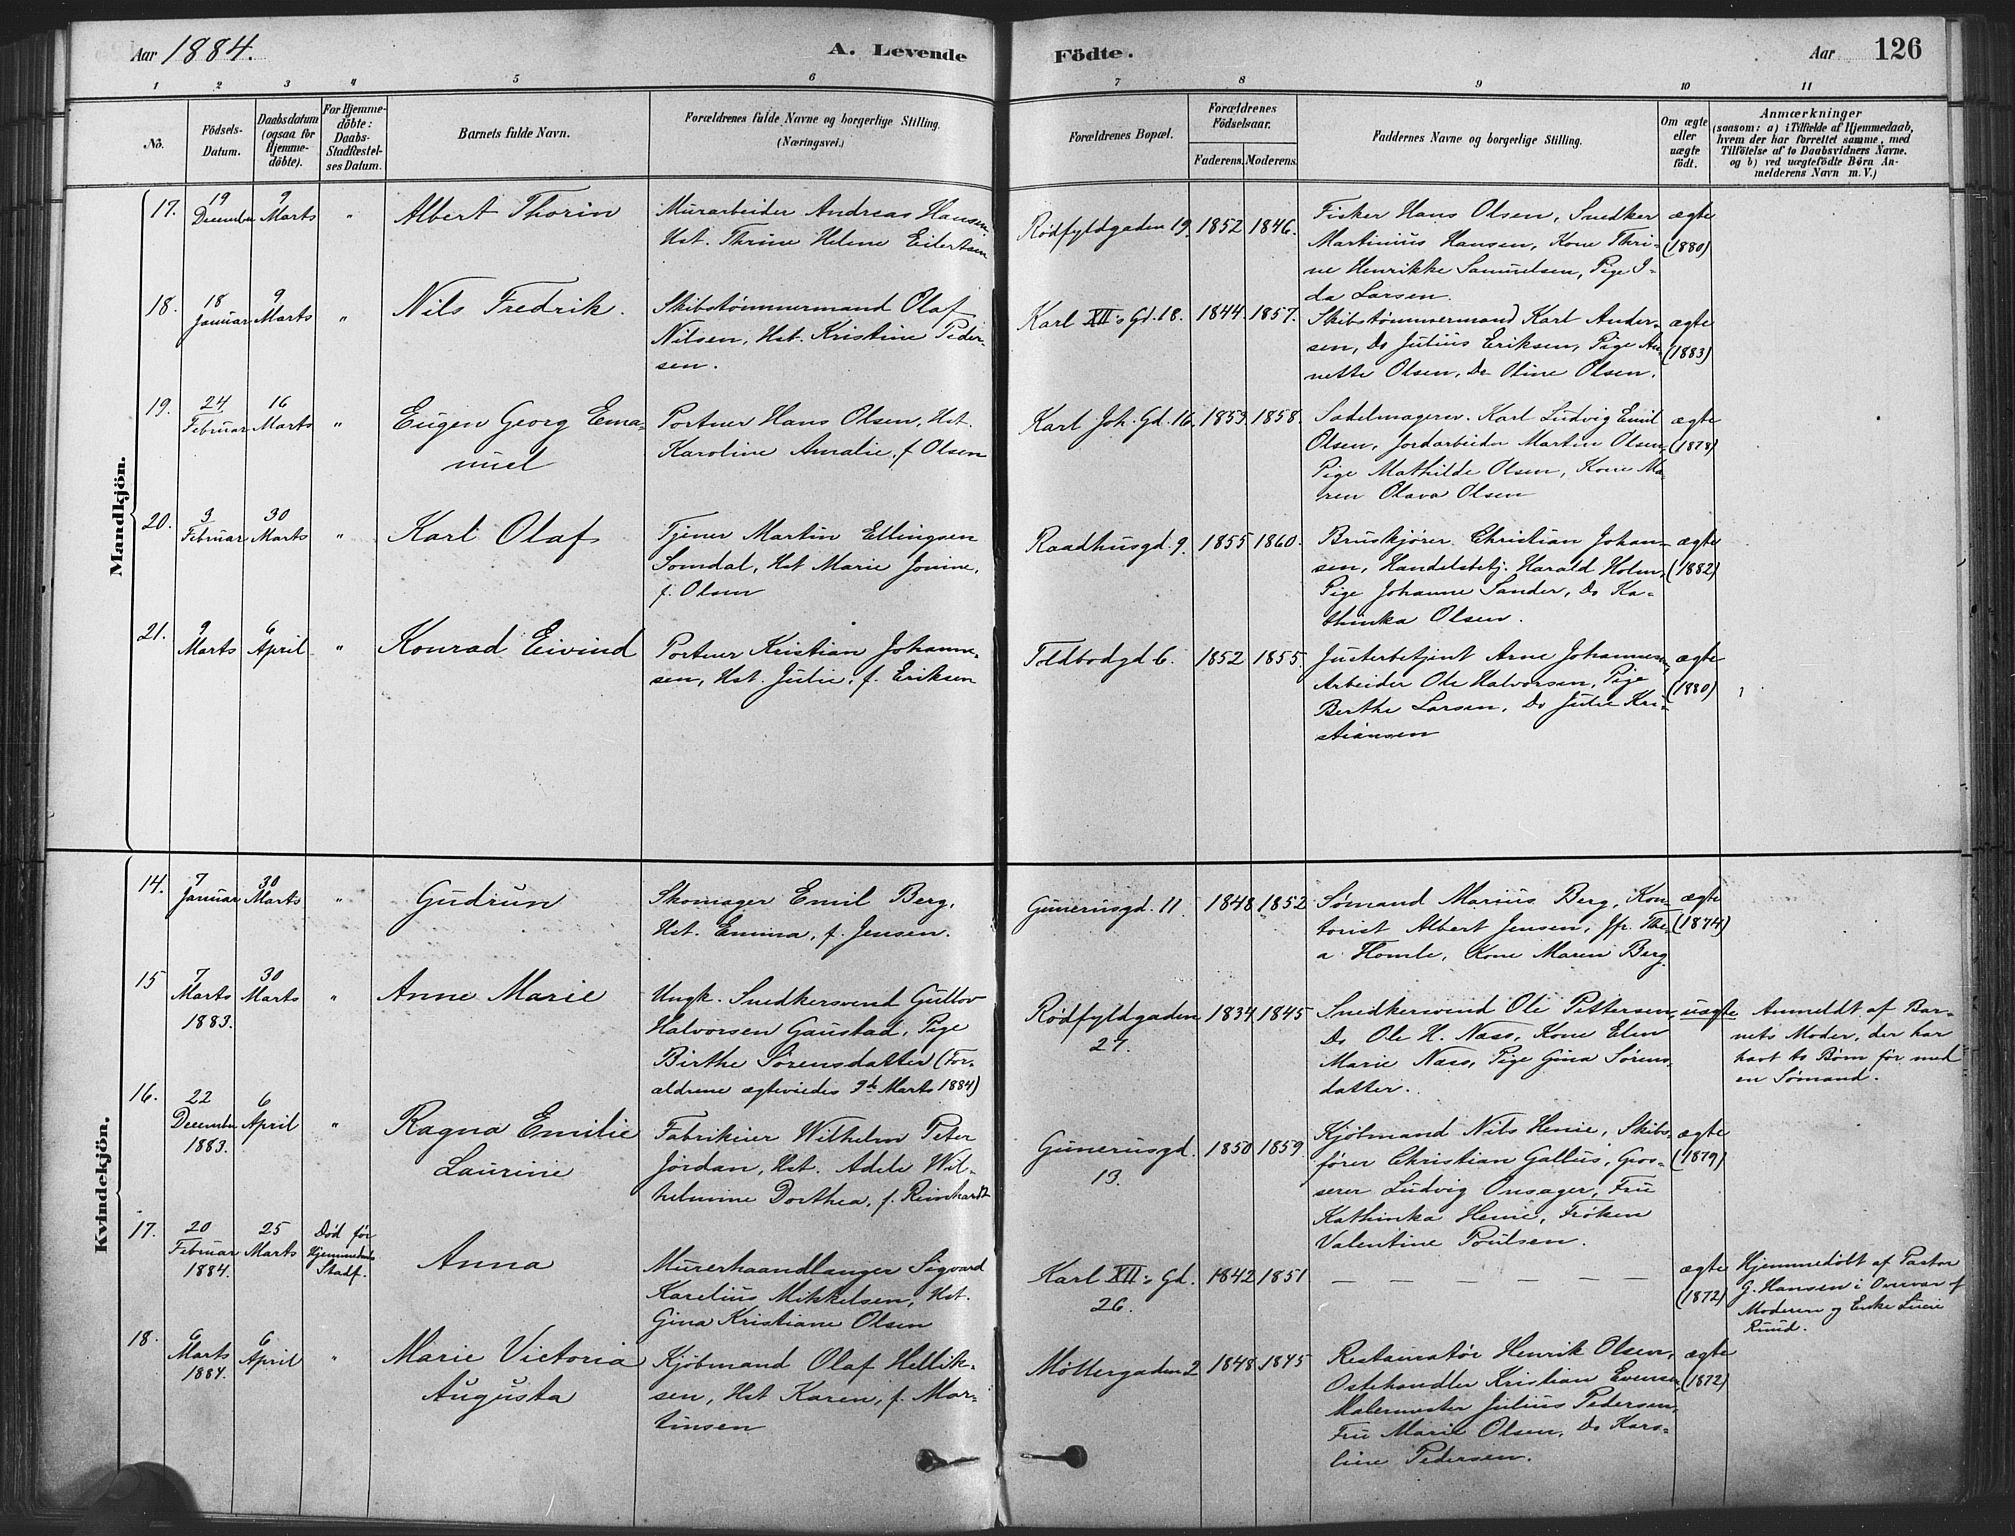 Aar 1884.
A. Levende
Födte.
Aar
126
1
2
3
4
5
6
7
8
9
10
11
No.
Födsels-
Datum.
Daabsdatum
(ogsaa for
Hjemme-
döbte).
For Hjemme-
döbte:
Daabs-
Stadfestel-
ses Datum.
Barnets fulde Navn.
Forældrenes fulde Navne og borgerlige Stilling.
(Næringsvei.)
Forældrenes Bopæl.
Forældrenes
Födselsaar.
Faderens.
Moderens.
Faddernes Navne og borgerlige Stilling.
Om ægte
eller
uægte
födt.
Anmærkninger
(saasom: a) i Tilfælde af Hjemmedaab,
hvem der har forrettet samme, med
Tilföielse af to Daabsvidners Navne.
og b) ved uægtefödte Börn An-
melderens Navn m. V.)
Mandkjön.
17.
19
December
9
Marts
"
Albert Thorin
Murarbeider Andreas Hansen,
Hst. Thrine Helene Eilertsen
Rødfyldgaden 19.
1852
1846.
Fisker Hans Olsen, Snedker
Martinius Hansen, Kone Thri-
ne Henrikke Samuelsen, Pige I-
da Larsen.
ægte
(1880)
18.
18
Januar
9
Marts
"
Nils Fredrik.
Skibstømmermand Olaf
Nilsen, Hst. Kristine Peder-
sen.
Karl XII's Gd. 18.
1844
1857.
Skibstømmermand Karl Ander-
sen, Do Julius Eriksen, Pige An-
nette Olsen, Do Oline Olsen.
ægte
(1883)
19.
24
Februar
16
Marts
"
Eugen Georg Ema-
nuel
Portner Hans Olsen, Hst.
Karoline Amalie, f Olsen
Karl Joh. Gd. 16.
1853
1858.
Sadelmagersv. Karl Ludvig Emil
Olsen, Jordarbeider Martin Olsen,
Pige Mathilde Olsen, Kone Ma-
ren Olava Olsen
ægte
(1878)
20.
3
Februar
30
Marts
"
Karl Olaf
Tjener Martin Ellingsen
Somdal, Hst Marie Jonine,
f. Olsen
Raadhusgd. 9.
1855
1860.
Bruskjører Christian Johan-
sen, Handelsbetj. Harald Holm,
Pige Johanne Sander, Do Ka-
thinka Olsen.
ægte
(1882)
21.
9
Marts
6
April
"
Konrad Eivind
Portner Kristian Johanne-
sen, Hst. Julie, f. Eriksen
Toldbodgd 6.
1852
1855.
Justerbetjent Arne Johannesen,
Arbeider Ole Halvorsen, Pige
Berthe Larsen, Do Julie Kri-
stiansen
ægte
(1880)
Kvindekjön.
14.
7
Januar
30
Marts
"
Gudrun
Skomager Emil Berg,
Hst. Emma, f. Jensen.
Gunerusgd. 11.
1848
1852
Sømand Marius Berg, Kon-
torist Albert Jensen, Jfr. The-
a Homle, Kone Maren Berg.
ægte
(1874)
15
7
Marts
1883.
30
Marts
"
Anne Marie
Ungk. Snedkersvend Gullov
Halvorsen Gaustad, Pige
Birthe Sørensdatter (For-
ældrene ægteviedes 9de Marts 1884)
Rødfyldgaden
27.
1834
1845
Snedkersvend Ole Pettersen,
Do Ole H. Næss, Kone Elen
Marie Næss, Pige Gina Sørens-
datter.
uægte
Anmeldt af Bar-
nets Moder, der har
havt to Børn før med
en Sømand.
16.
22
December
1883.
6
April
"
Ragna Emilie
Laurine
Fabrikeier Wilhelm Peter
Jordan, Hst. Adele Wil-
helmine Dorthea, f. Reinhardt
Gunerusgd.
13.
1850
1859.
Kjøbmand Nils Henie, Skibs-
fører Christian Gallus, Gros-
serer Ludvig Onsager, Fru
Kathinka Henie, Frøken
Valentine Poulsen.
ægte
(1879)
17.
20
Februar
1884.
25
Marts
Død før
Hjemmedaabs
Stadf.
Anna
Murerhaandlanger Sigvard
Karelius Mikkelsen, Hst.
Gina Kristiane Olsen
Karl XII's Gd.
26.
1842
1851
— — — — — —
ægte
(1872)
Hjemmedøbt af Pastor
G. Hansen i Overvær af
Moderen og Enke Lucie
Ruud.
18.
6
Marts
1884.
6
April
"
Marie Victoria
Augusta
Kjøbmand Olaf Hellik-
sen, Hst Karen, f. Mar-
tinsen
Møllergaden 2
1848
1845
Restauratør Henrik Olsen,
Ostehandler Kristian Evensen,
Malermester Julius Pedersen,
Fru Marie Olsen, Do Karo-
line Pedersen.
ægte
(1872)